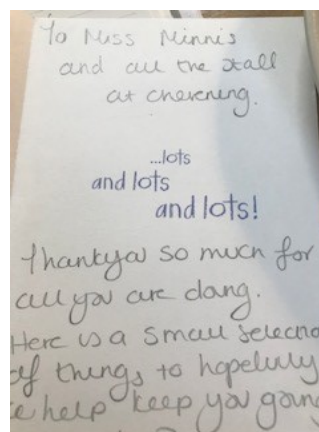 To Miss Minnis
and all the staff
at chevening.
...lots
and lots
and lots!
Thankyou so much for
all you are doing.
Here is a small selectio
of things to hopefully
help keep you going